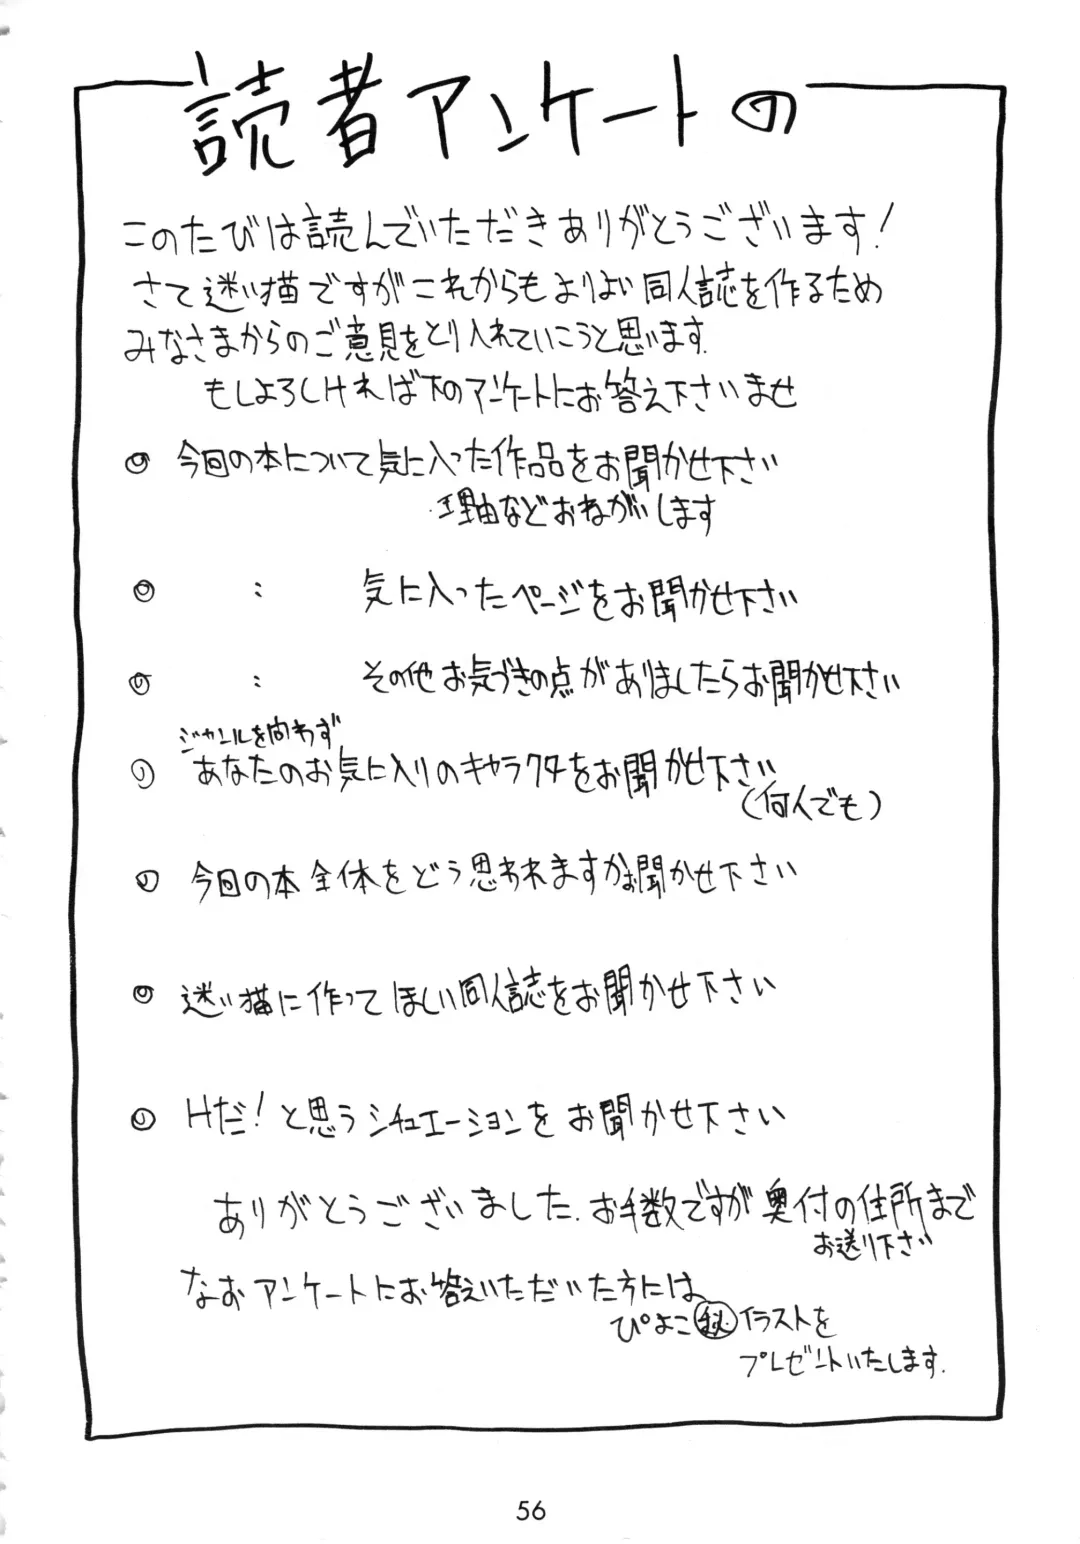 読者アンケートの
このたびは読んでいただきありがとうございます!
さて迷い猫ですがこれからもよりよい同人誌を作るため
みなさまからのご意見をとり入れていこうと思います.
もしよろしければ下のアンケートにお答え下さいませ
◎ 今回の本について気に入った作品をお聞かせ下さい
理由などおねがいします
◎ : 気に入ったページをお聞かせ下さい
◎ : その他お気づきの点がありましたらお聞かせ下さい
ジャンルを問わず
◎ あなたのお気に入りのキャラクタをお聞かせ下さい
(何人でも)
◎ 今回の本全体をどう思われますかお聞かせ下さい
◎ 迷い猫に作ってほしい同人誌をお聞かせ下さい
◎ Hだ!と思うシチュエーションをお聞かせ下さい
ありがとうございました.お手数ですが奥付の住所まで
お送り下さい
なおアンケートにお答えいただいた方には
ぴよこ㊙イラストを
プレゼントいたします.
56